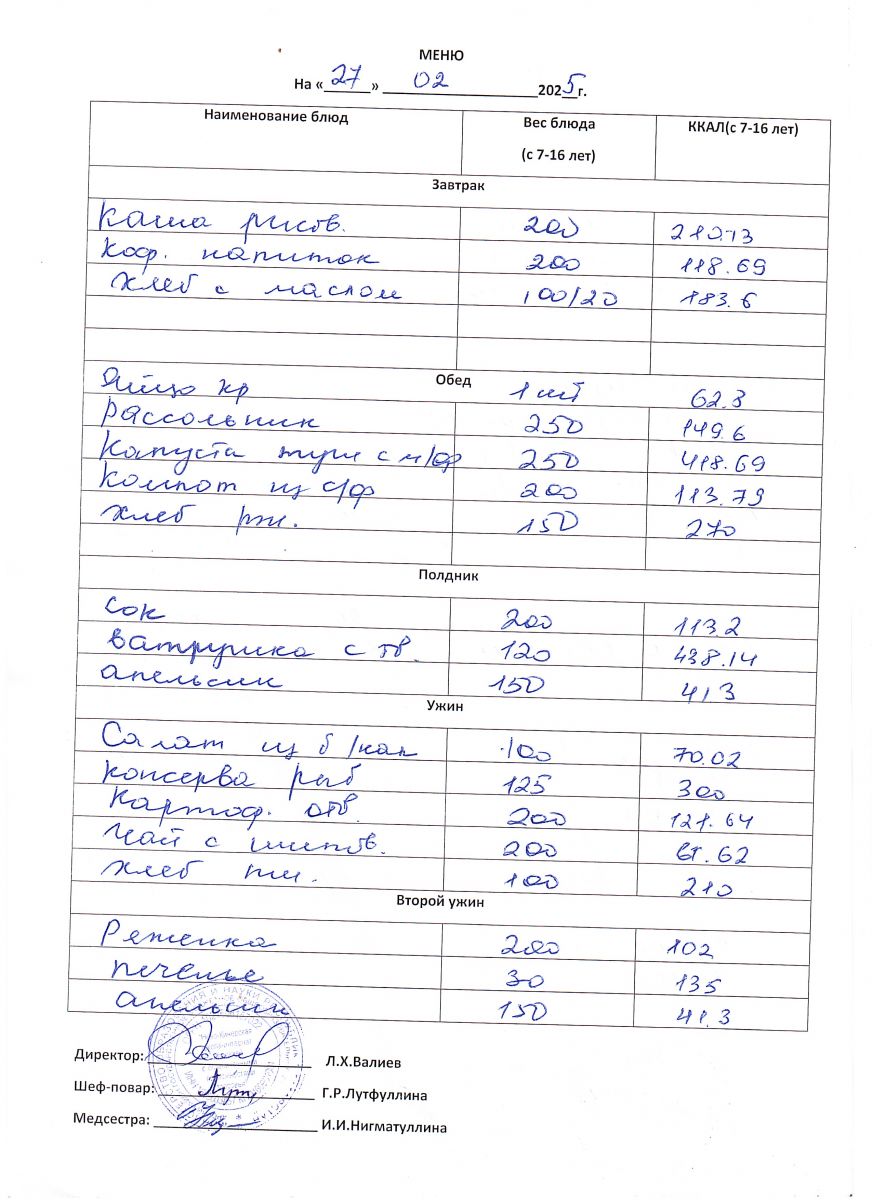 МЕНЮ
На «27» 02 2025г.
Наименование блюд Вес блюда (с 7-16 лет) ККАЛ(с 7-16 лет)
Завтрак
Каша рисов. 200 210.13
Коф. напиток 200 118.69
Хлеб с маслом 100/20 183.6
Обед
Яйцо кр 1 шт 62.8
Рассольник 250 149.6
Капуста туш с м/фр 250 418.69
Компот из с/ф 200 113.79
Хлеб рж. 150 270
Полдник
Сок 200 113.2
Ватрушка с тв. 120 438.14
апельсин 150 41,3
Ужин
Салат из б/кап 100 70.02
Консерва рыб 125 300
Картоф. отв. 200 121.64
Чай с шипов. 200 61.62
Хлеб пш. 100 210
Второй ужин
Ряженка 200 102
печенье 30 135
апельсин 150 41.3
Директор: Л.Х.Валиев
Шеф-повар: Г.Р.Лутфуллина
Медсестра: И.И.Нигматуллина